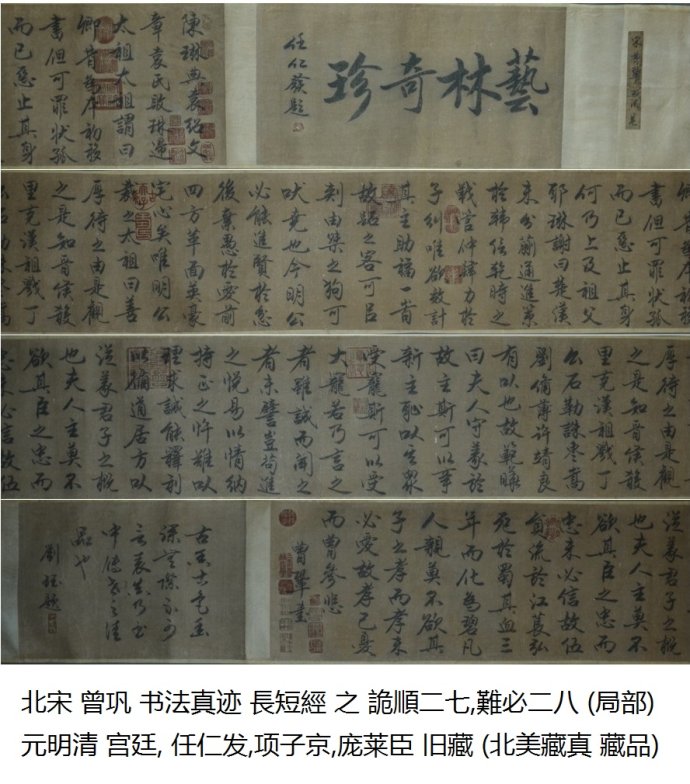 藝林奇珍
任仁發題
陳琳典袁紹文
章袁氏敗琳歸
太祖太祖謂曰
卿昔為本初移
書但可罪狀孤
而已惡止其身
書但可罪狀孤
而已惡止其身
何乃上及祖父
耶琳謝曰楚漢
未分蒯通進策
於韓信乾時之
戰管仲肆力於
子糾唯欲效計
其主助福一時
故跖之客可
刺由桀之狗可
吠堯也今明公
必能進賢於忿
後棄愚於愛前
四方革面英豪
宅心矣唯明公
裁之太祖曰善
厚待之由是觀
之是知晉侯殺
里克漢祖戮丁
公石勒誅棗嵩
厚待之由是觀
之是知晉侯殺
里克漢祖戮丁
公石勒誅棗嵩
劉備薄許靖良
有以也故範曄
曰夫人守義於
故主斯可以事
新主恥以其眾
受寵斯可以受
大寵若乃言之
者雖誠而聞之
者未譬豈苟進
之悅易以情納
持正之忤難以
理求誠能釋利
以循道居方以
從義君子之概
也夫人主莫不
欲其臣之忠而
忠未必信故伍
從義君子之概
也夫人主莫不
欲其臣之忠而
忠未必信故伍
員流於江萇弘
死於蜀其血三
年而化為碧凡
人親莫不欲其
子之孝而孝未
必愛故孝己憂
而曾參悲
曾鞏書
品也
劉珏題
北宋 曾巩 书法真迹 長短經 之 詭順二七,難必二八 (局部)
元明清 宫廷, 任仁发,项子京,庞莱臣 旧藏 (北美藏真 藏品)